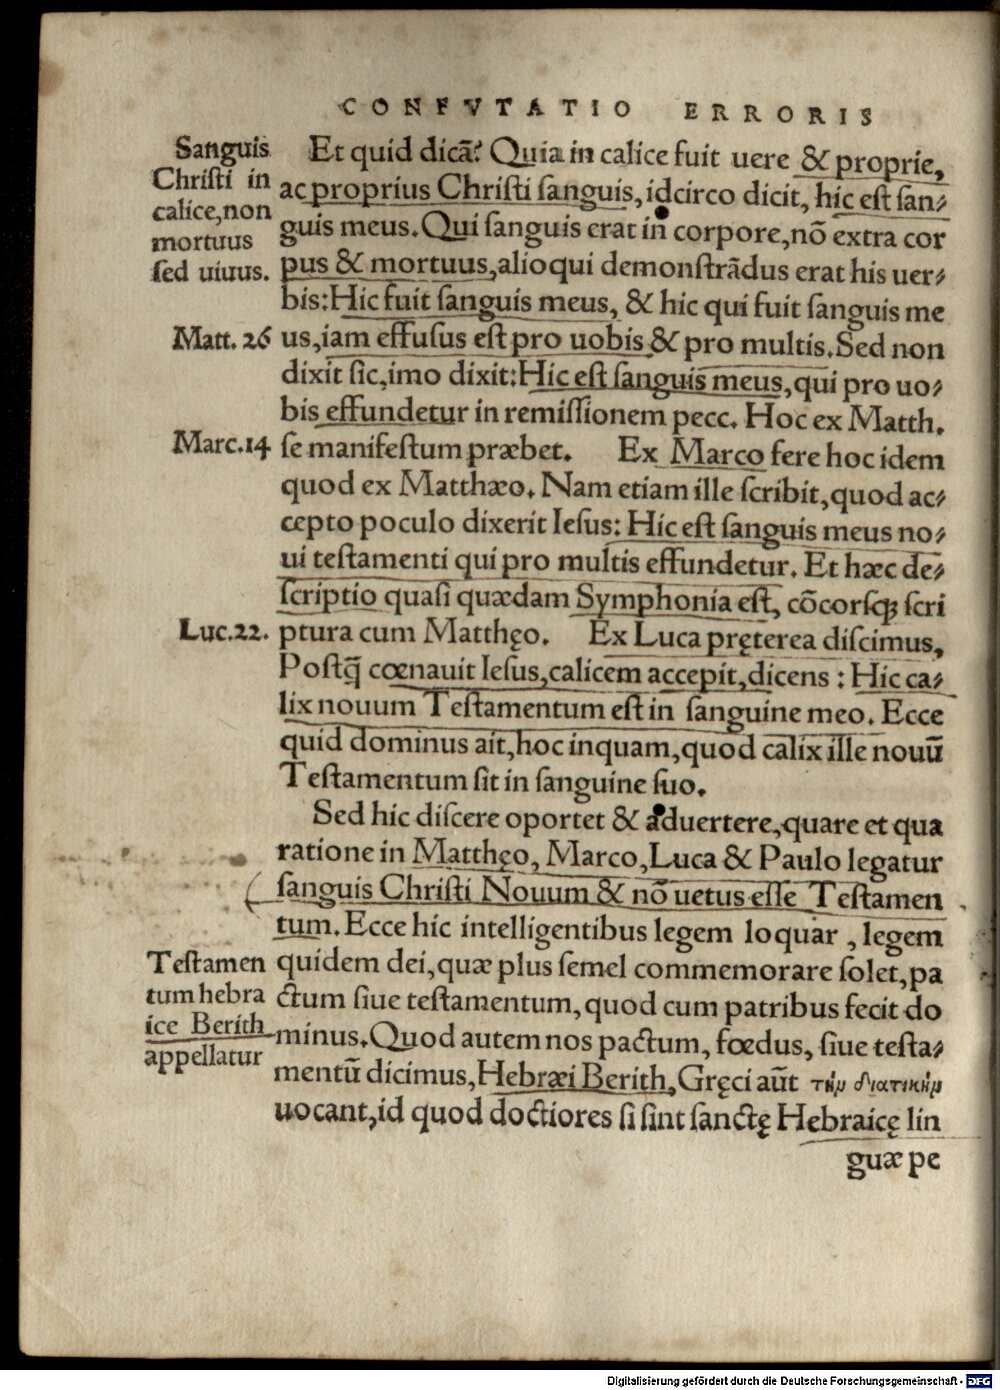 CONFVTATIO ERRORIS
Sanguis
Chriſti in
calice,non
mortuus
ſed uiuus.
Et quid dicā? Quia in calice fuit uere & proprie,
ac proprius Chriſti ſanguis, idcirco dicit, hic eſt ſan-
guis meus. Qui ſanguis erat in corpore, nō extra cor
pus & mortuus, alioqui demonſtrādus erat his uer-
bis: Hic fuit ſanguis meus, & hic qui fuit ſanguis me
Matt. 26
us, iam effuſus eſt pro uobis & pro multis. Sed non
dixit ſic, imo dixit: Hic eſt ſanguis meus, qui pro uo-
bis effundetur in remiſſionem pecc. Hoc ex Matth.
Marc. 14
ſe manifeſtum præbet. Ex Marco fere hoc idem
quod ex Matthæo. Nam etiam ille ſcribit, quod ac-
cepto poculo dixerit Ieſus: Hic eſt ſanguis meus no-
ui teſtamenti qui pro multis effundetur. Et hæc de-
ſcriptio quaſi quædam Symphonia eſt, cōcorſq; ſcri
Luc. 22.
ptura cum Matthęo. Ex Luca pręterea diſcimus,
Poſtq̄ cœnauit Ieſus, calicem accepit, dicens : Hic ca-
lix nouum Teſtamentum eſt in ſanguine meo. Ecce
quid dominus ait, hoc inquam, quod calix ille nouū
Teſtamentum ſit in ſanguine ſuo.
Sed hic diſcere oportet & aduertere, quare et qua
ratione in Matthęo, Marco, Luca & Paulo legatur
ſanguis Chriſti Nouum & nō uetus eſſe Teſtamen
tum. Ecce hic intelligentibus legem loquar , legem
Teſtamen
tum hebra
ice Berith
appellatur
quidem dei, quæ plus ſemel commemorare ſolet, pa
ctum ſiue teſtamentum, quod cum patribus fecit do
minus. Quod autem nos pactum, fœdus, ſiue teſta-
mentū dicimus, Hebræi Berith, Gręci aūt τὴν διατικὴν
uocant, id quod doctiores ſi ſint ſanctę Hebraicę lin
guæ pe
Digitalisierung gefördert durch die Deutsche Forschungsgemeinschaft - DFG